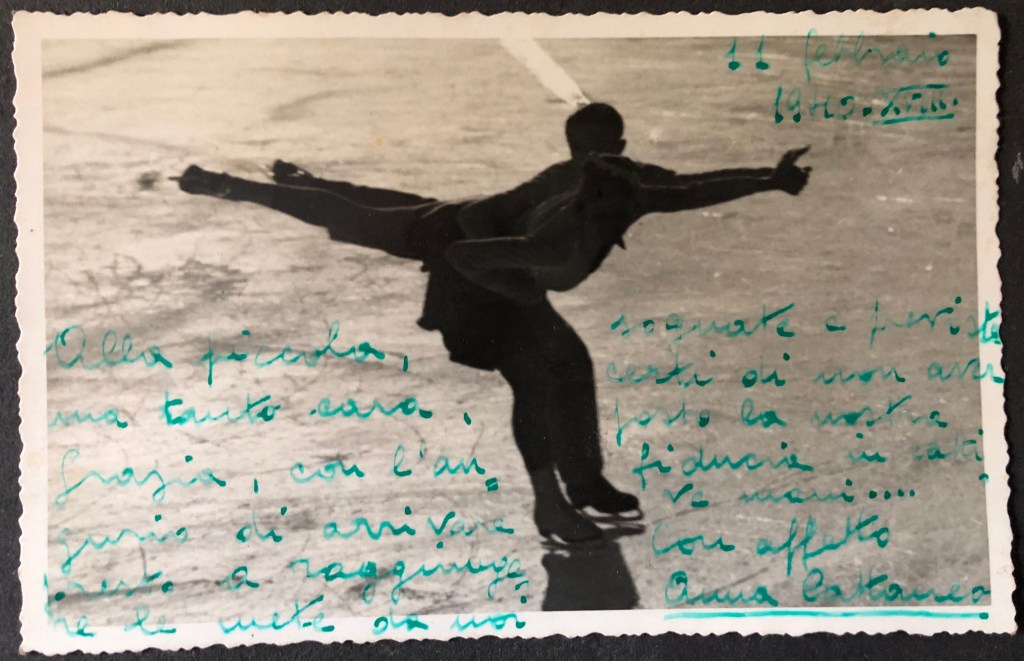 11 febbraio
1940. XVIII.
Alla piccola,
ma tanto cara,
Grazia, con l'au=
gurio di arrivare
presto a raggiunge
re le mete da noi
sognate e previste
certi di non aver
posto la nostra
fiducia in catti
ve mani....
Con affetto
Anna Cattaneo